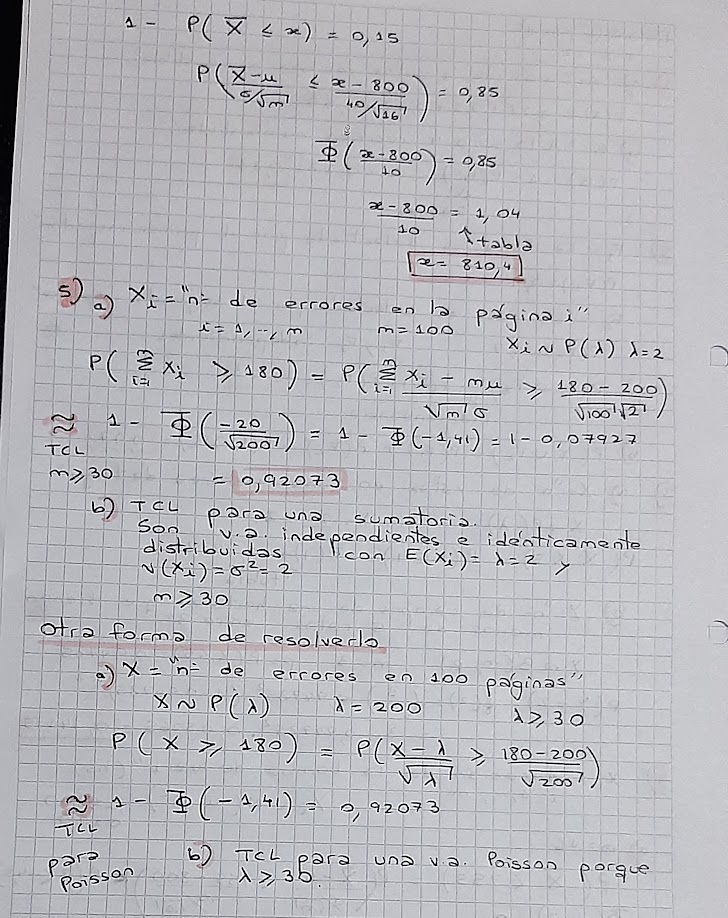 1 - P( X̅ ≤ x) = 0,15
P( (X̅-μ)/(σ/√n) ≤ (x-800)/(40/√16) ) = 0,85
Φ( (x-800)/10 ) = 0,85
(x-800)/10 = 1,04
↑ tabla
x = 810,4
5) a) Xi = "nº de errores en la página i"
i = 1, .., n n = 100
Xi ~ P(λ) λ = 2
P( ∑_{i=1}^{n} Xi ≥ 180) = P( (∑_{i=1}^{n} Xi - nμ)/(√n σ) ≥ (180 - 200)/(√100 √2) )
≈ 1 - Φ( -20/√200 ) = 1 - Φ(-1,41) = 1 - 0,07927
TCL
n ≥ 30 = 0,92073
b) TCL para una sumatoria.
Son v.a. independientes e idénticamente
distribuidas con E(Xi) = λ = 2 y
V(Xi) = σ² = 2
n ≥ 30
Otra forma de resolverlo
a) X = "nº de errores en 100 páginas"
X ~ P(λ) λ = 200 λ ≥ 30
P( X ≥ 180) = P( (X - λ)/√λ ≥ (180 - 200)/√200 )
≈ 1 - Φ(-1,41) = 0,92073
TCL
para
Poisson
b) TCL para una v.a. Poisson porque
λ ≥ 30.